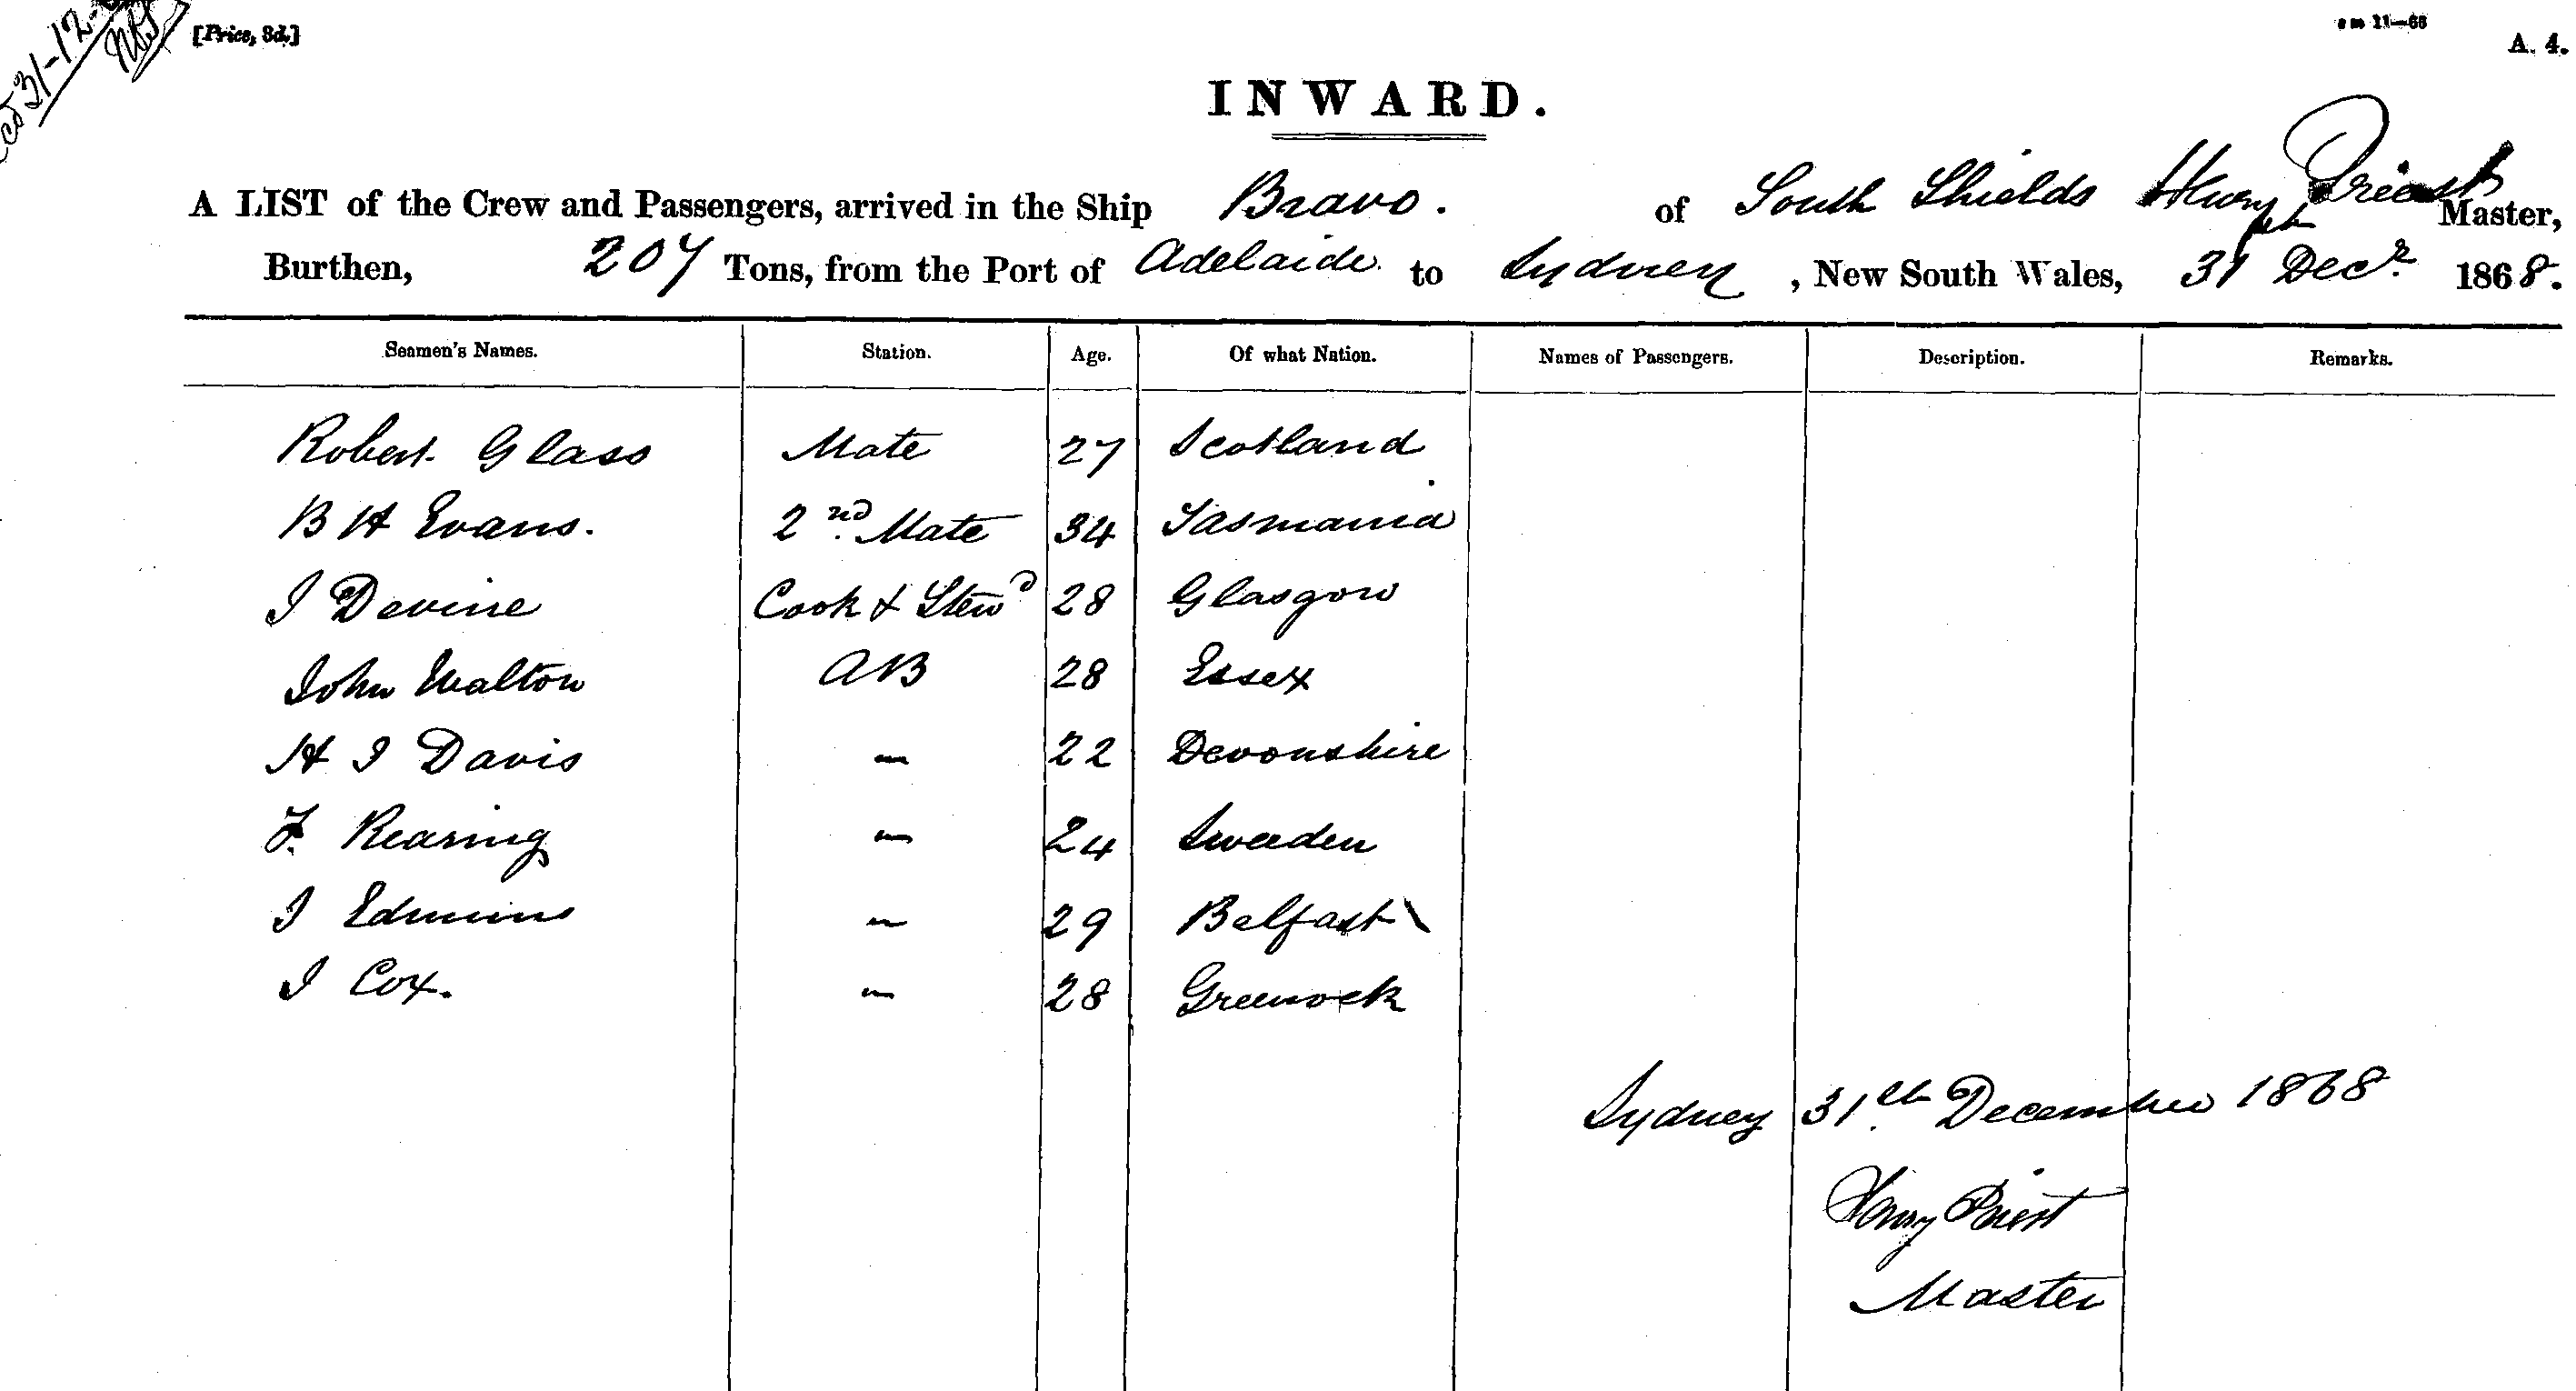 [Price, 3d.]
A. 4.
INWARD.
A LIST of the Crew and Passengers, arrived in the Ship Bravo. of South Shields Henry Priest Master,
Burthen, 207 Tons, from the Port of Adelaide to Sydney, New South Wales, 31 Decr. 1868.
Seamen's Names. Station. Age. Of what Nation. Names of Passengers. Description. Remarks.
Robert Glass Mate 27 Scotland
B H Evans. 2nd Mate 34 Tasmania
J Devine Cook & Stewd 28 Glasgow
John Walton AB 28 Essex
H J Davis – 22 Devonshire
F. Rearing – 24 Sweeden
J – 29 Belfast
J Cox. – 28 Greenock
Sydney 31th December 1868
Henry Priest
Master